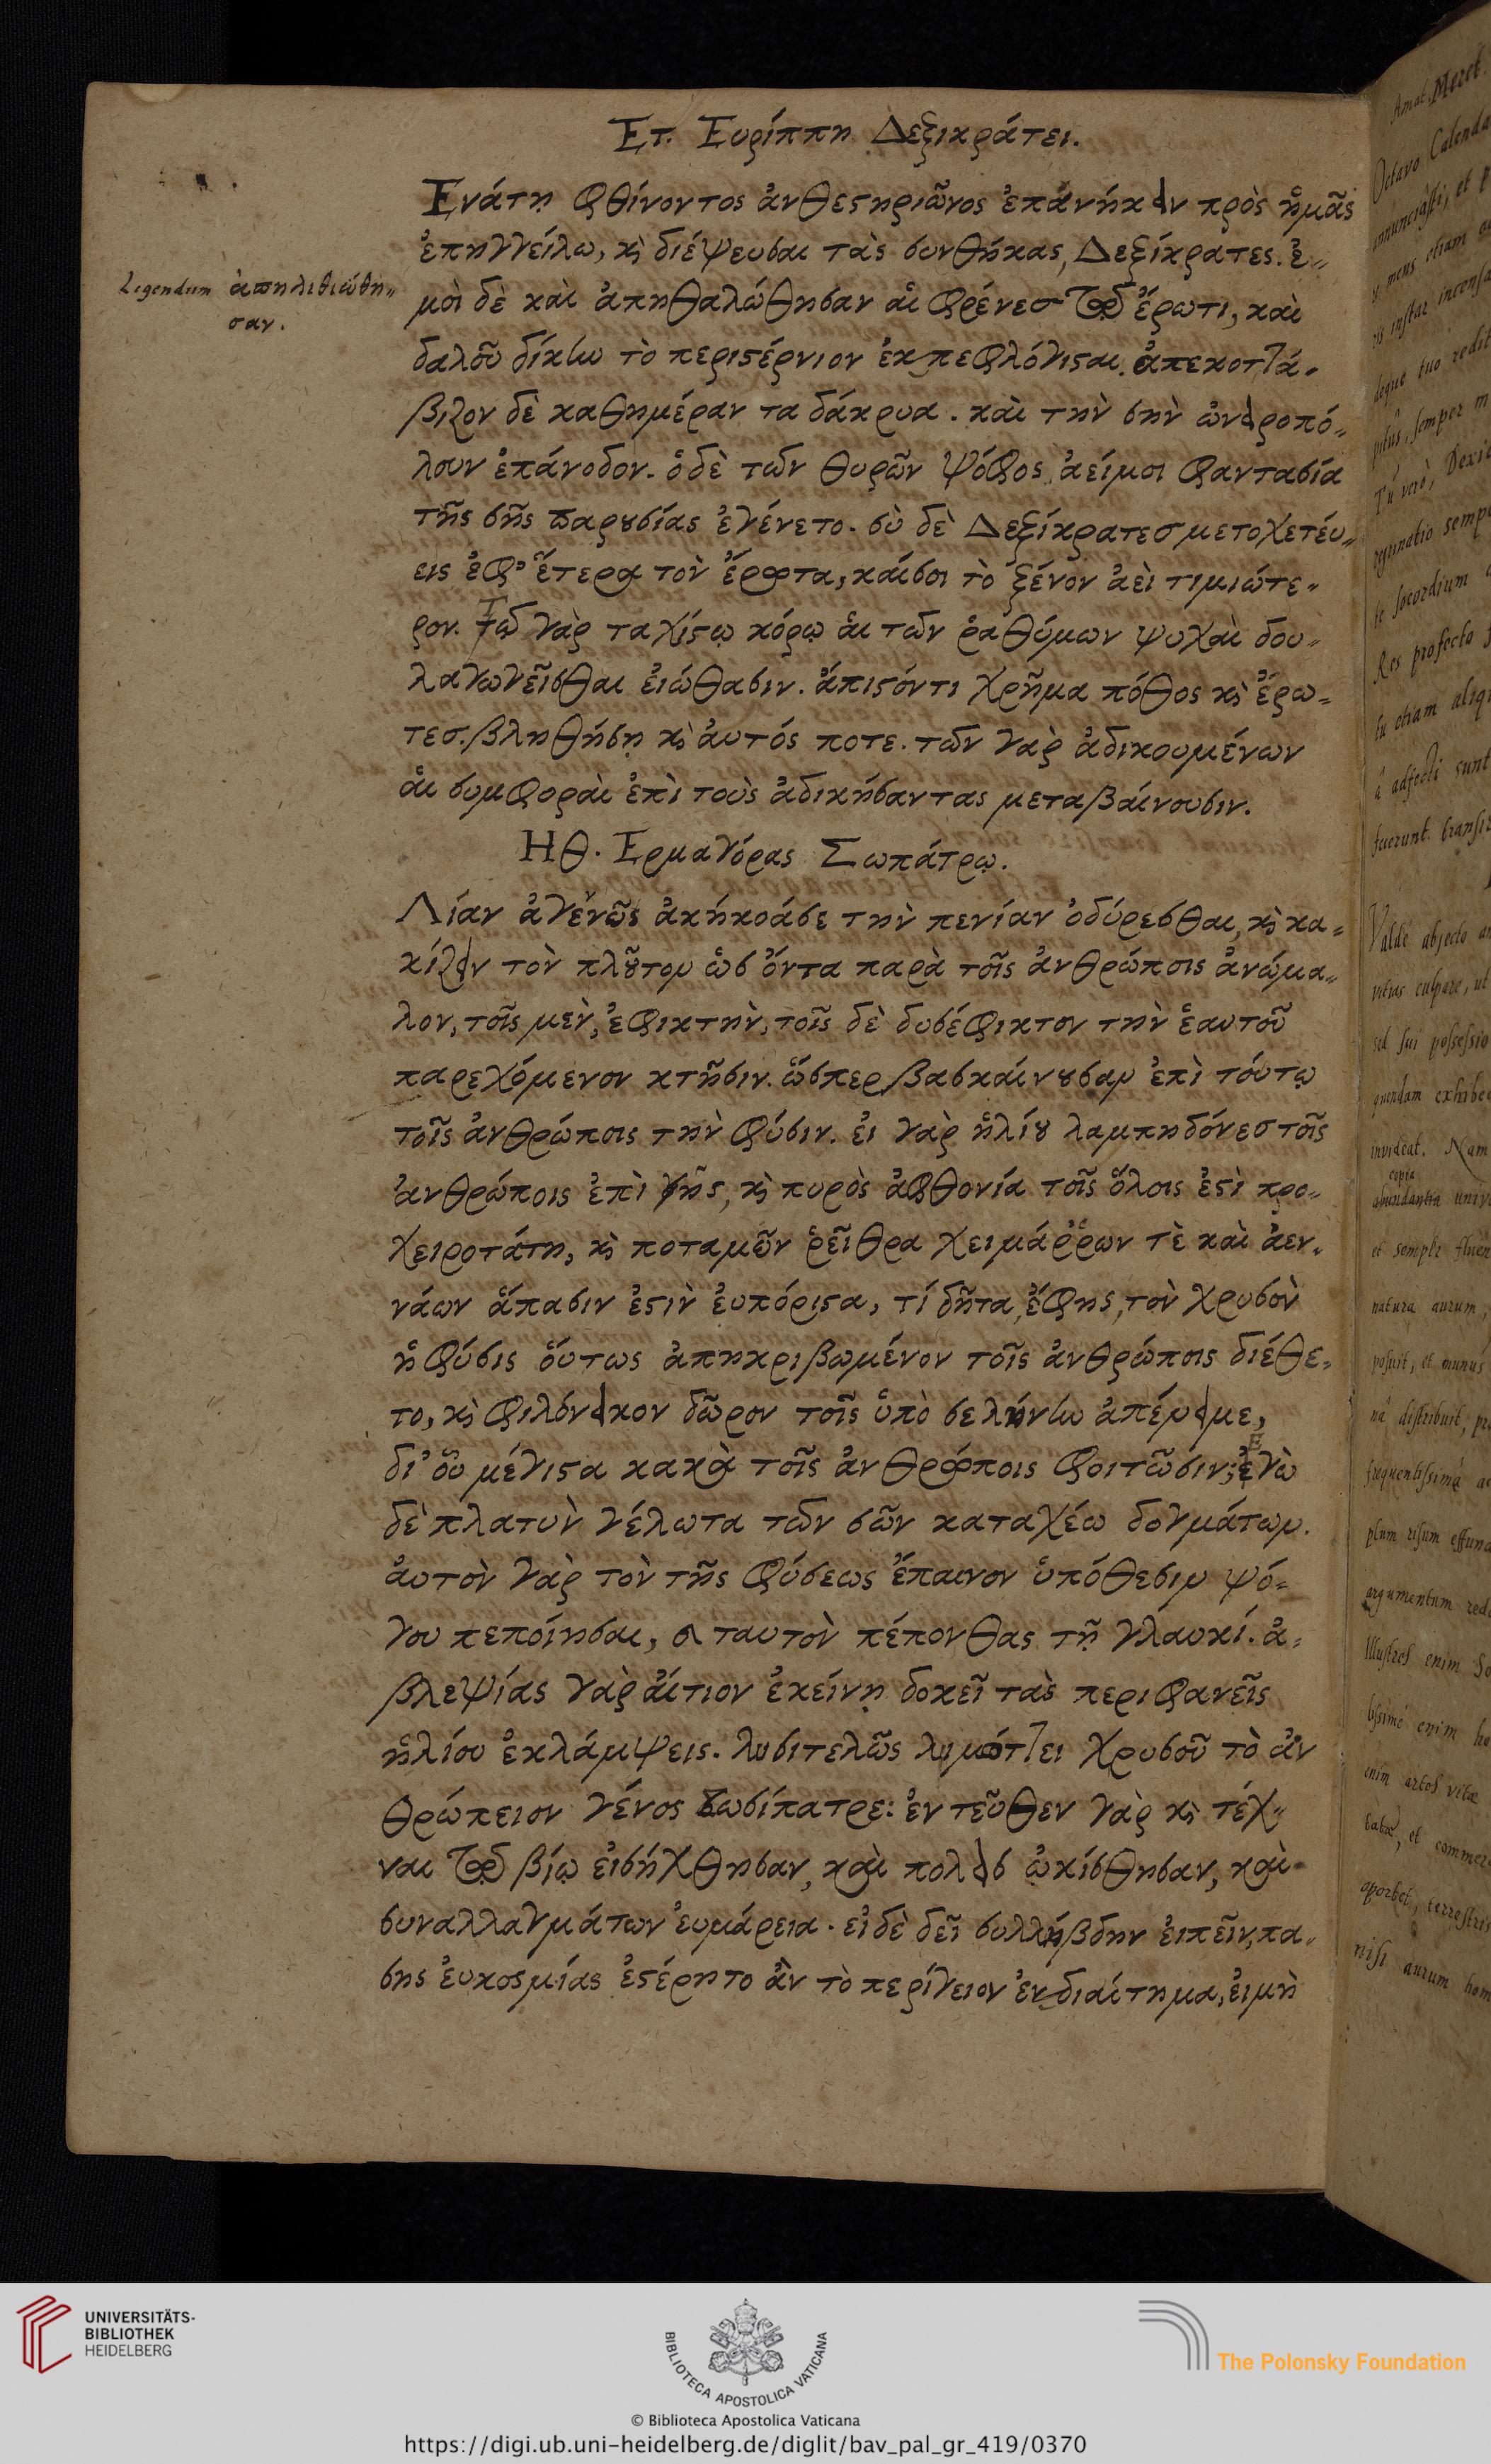 Ετ. Ευρίππη Δεξικράτει.
Ενάτη φθίνοντος ἀνθεστηριῶνος ἐπἀνήκειν πρὸς ἡμᾶς
ἐπηγγείλω, κὶ διέψευσαι τὰς συνθήκας, Δεξίκρατες. ἐ-
Legendum ἀπηλιθιώθη-
σαν.
μοὶ δὲ καὶ ἀπηθαλώθησαν αἱ φρένεσ τῷδ ἔρωτι, καὶ
δαλοῦ δίκην τὸ περιστέρνιον ἐκπεφλόγισται. ἀπεκοττά-
βιζον δὲ καθημέραν τα δάκρυα. καὶ τὴν σὴν ὠνειροπό-
λουν ἐπάνοδον. ὁ δὲ τῶν θυρῶν ψόφος ἀείμοι φαντασία
τῆς σῆς παρουσίας ἐγένετο. σὺ δὲ Δεξίκρατεσ μετοχετέυ-
εις ἐφ' ἕτερα τὸν ἔρωτα, καίσοι τὸ ξένον ἀεὶ τιμιώτε-
ρον. τῶ γὰρ ταχίστῳ κόρῳ αἱ τῶν ῥαθύμων ψυχαὶ δου-
λαγωγεῖσθαι ἐιώθασιν. ἄπιστόντι χρῆμα πόθος κὶ ἔρω-
τεσ. βληθήσῃ κὶ ἀυτός ποτε. τῶν γὰρ ἀδικουμένων
αἱ συμφοραὶ ἐπὶ τοὺς ἀδικήσαντας μεταβάινουσιν.
Ηθ. Ερμαγόρας Σωπάτρῳ.
Λίαν ἀγενῶς ἀκήκοάσε τὴν πενίαν ὀδύρεσθαι, κὶ κα-
κίζειν τὸν πλοῦτον ὡσ ὄντα παρὰ τοῖς ἀνθρώποις ἀνώμα-
λον, τοῖς μεν, ἐφικτὴν, τοῖς δὲ δυσέφικτον τὴν ἑαυτοῦ
παρεχόμενον κτῆσιν. ὥσπερ βασκάινουσαν ἐπὶ τόυτῳ
τοῖς ἀνθρώποις τὴν φύσιν. ἐι γὰρ ἡλίου λαμπηδόνεσ τοῖς
ἀνθρώποις ἐπὶ γῆς, κὶ πυρὸς ἀφθονία τοῖς ὅλοις ἐστὶ προ-
χειροτάτη, κὶ ποταμῶν ῥεῖθρα χειμάῤῥων τὲ καὶ ἀεν-
νάων ἅπασιν ἐστὶν ἐυπόριστα, τί δῆτα, ἔφης, τὸν χρυσὸν
ἡ φύσις ὅυτως ἀπηκριβωμένον τοῖς ἀνθρώποις διέθε-
το, κὶ φιλόνεικον δῶρον τοῖς ὑπὸ σελήνην ἀπένειμε,
δι' ὅυ μέγιστα κακὰ τοῖς ἀνθρώποις φοιτῶσιν; ἐγὼ
δὲ πλατὺν γέλωτα τῶν σῶν καταχέω δογμάτων.
ἀυτὸν γὰρ τὸν τῆς φύσεως ἔπαινον ὑπόθεσιν ψό-
γου πεπόιησαι, κὶ ταυτὸν πέπονθας τῇ γλαυκί. ἀ-
βλεψίας γὰρ ἀίτιον ἐκείνῃ δοκεῖ τὰς περιφανεῖς
ἡλίου ἐκλάμψεις. λυσιτελῶς λιμώττει χρυσοῦ τὸ ἀν
θρώπειον γένος Σωσίπατρε: ἐν τεῦθεν γὰρ κὶ τέχ-
ναι τῷδ βίῳ ἐισήχθησαν, καὶ πόλεισ ᾠκίσθησαν, καὶ
συναλλαγμάτων ἐυμάρεια. εἰ δὲ δεῖ συλλήβδην ἐιπεῖν, πα-
σης ἐυκοσμίας ἐστέρητο ἂν τὸ περίγειον ἐνδιαίτημα, ἐιμὴ
Amat. Meret.
Octavo Calenda
innunciasti, et p
y mens etiam
is instar incensa
deque tuo redit
pitus, semper m
Tu vero, Dexic
Res profecto
tu etiam aliqu
fuerunt. transi
Valdè abjecto an
vitias culpare, ut
sed sui possessio
quendam exhibe
invideat. Nam
copia
abundantia univ
et semper fluen
natura aurum,
posuit, et munus
nâ distribuit,
frequentissimè
plum risum effund
argumentum red
Illustres enim So
enim artes vitæ
et commer
oportet, terrestris
nisi aurum hom
UNIVERSITÄTS-
BIBLIOTHEK
HEIDELBERG
BIBLIOTECA APOSTOLICA VATICANA
The Polonsky Foundation
© Biblioteca Apostolica Vaticana
https://digi.ub.uni-heidelberg.de/diglit/bav_pal_gr_419/0370